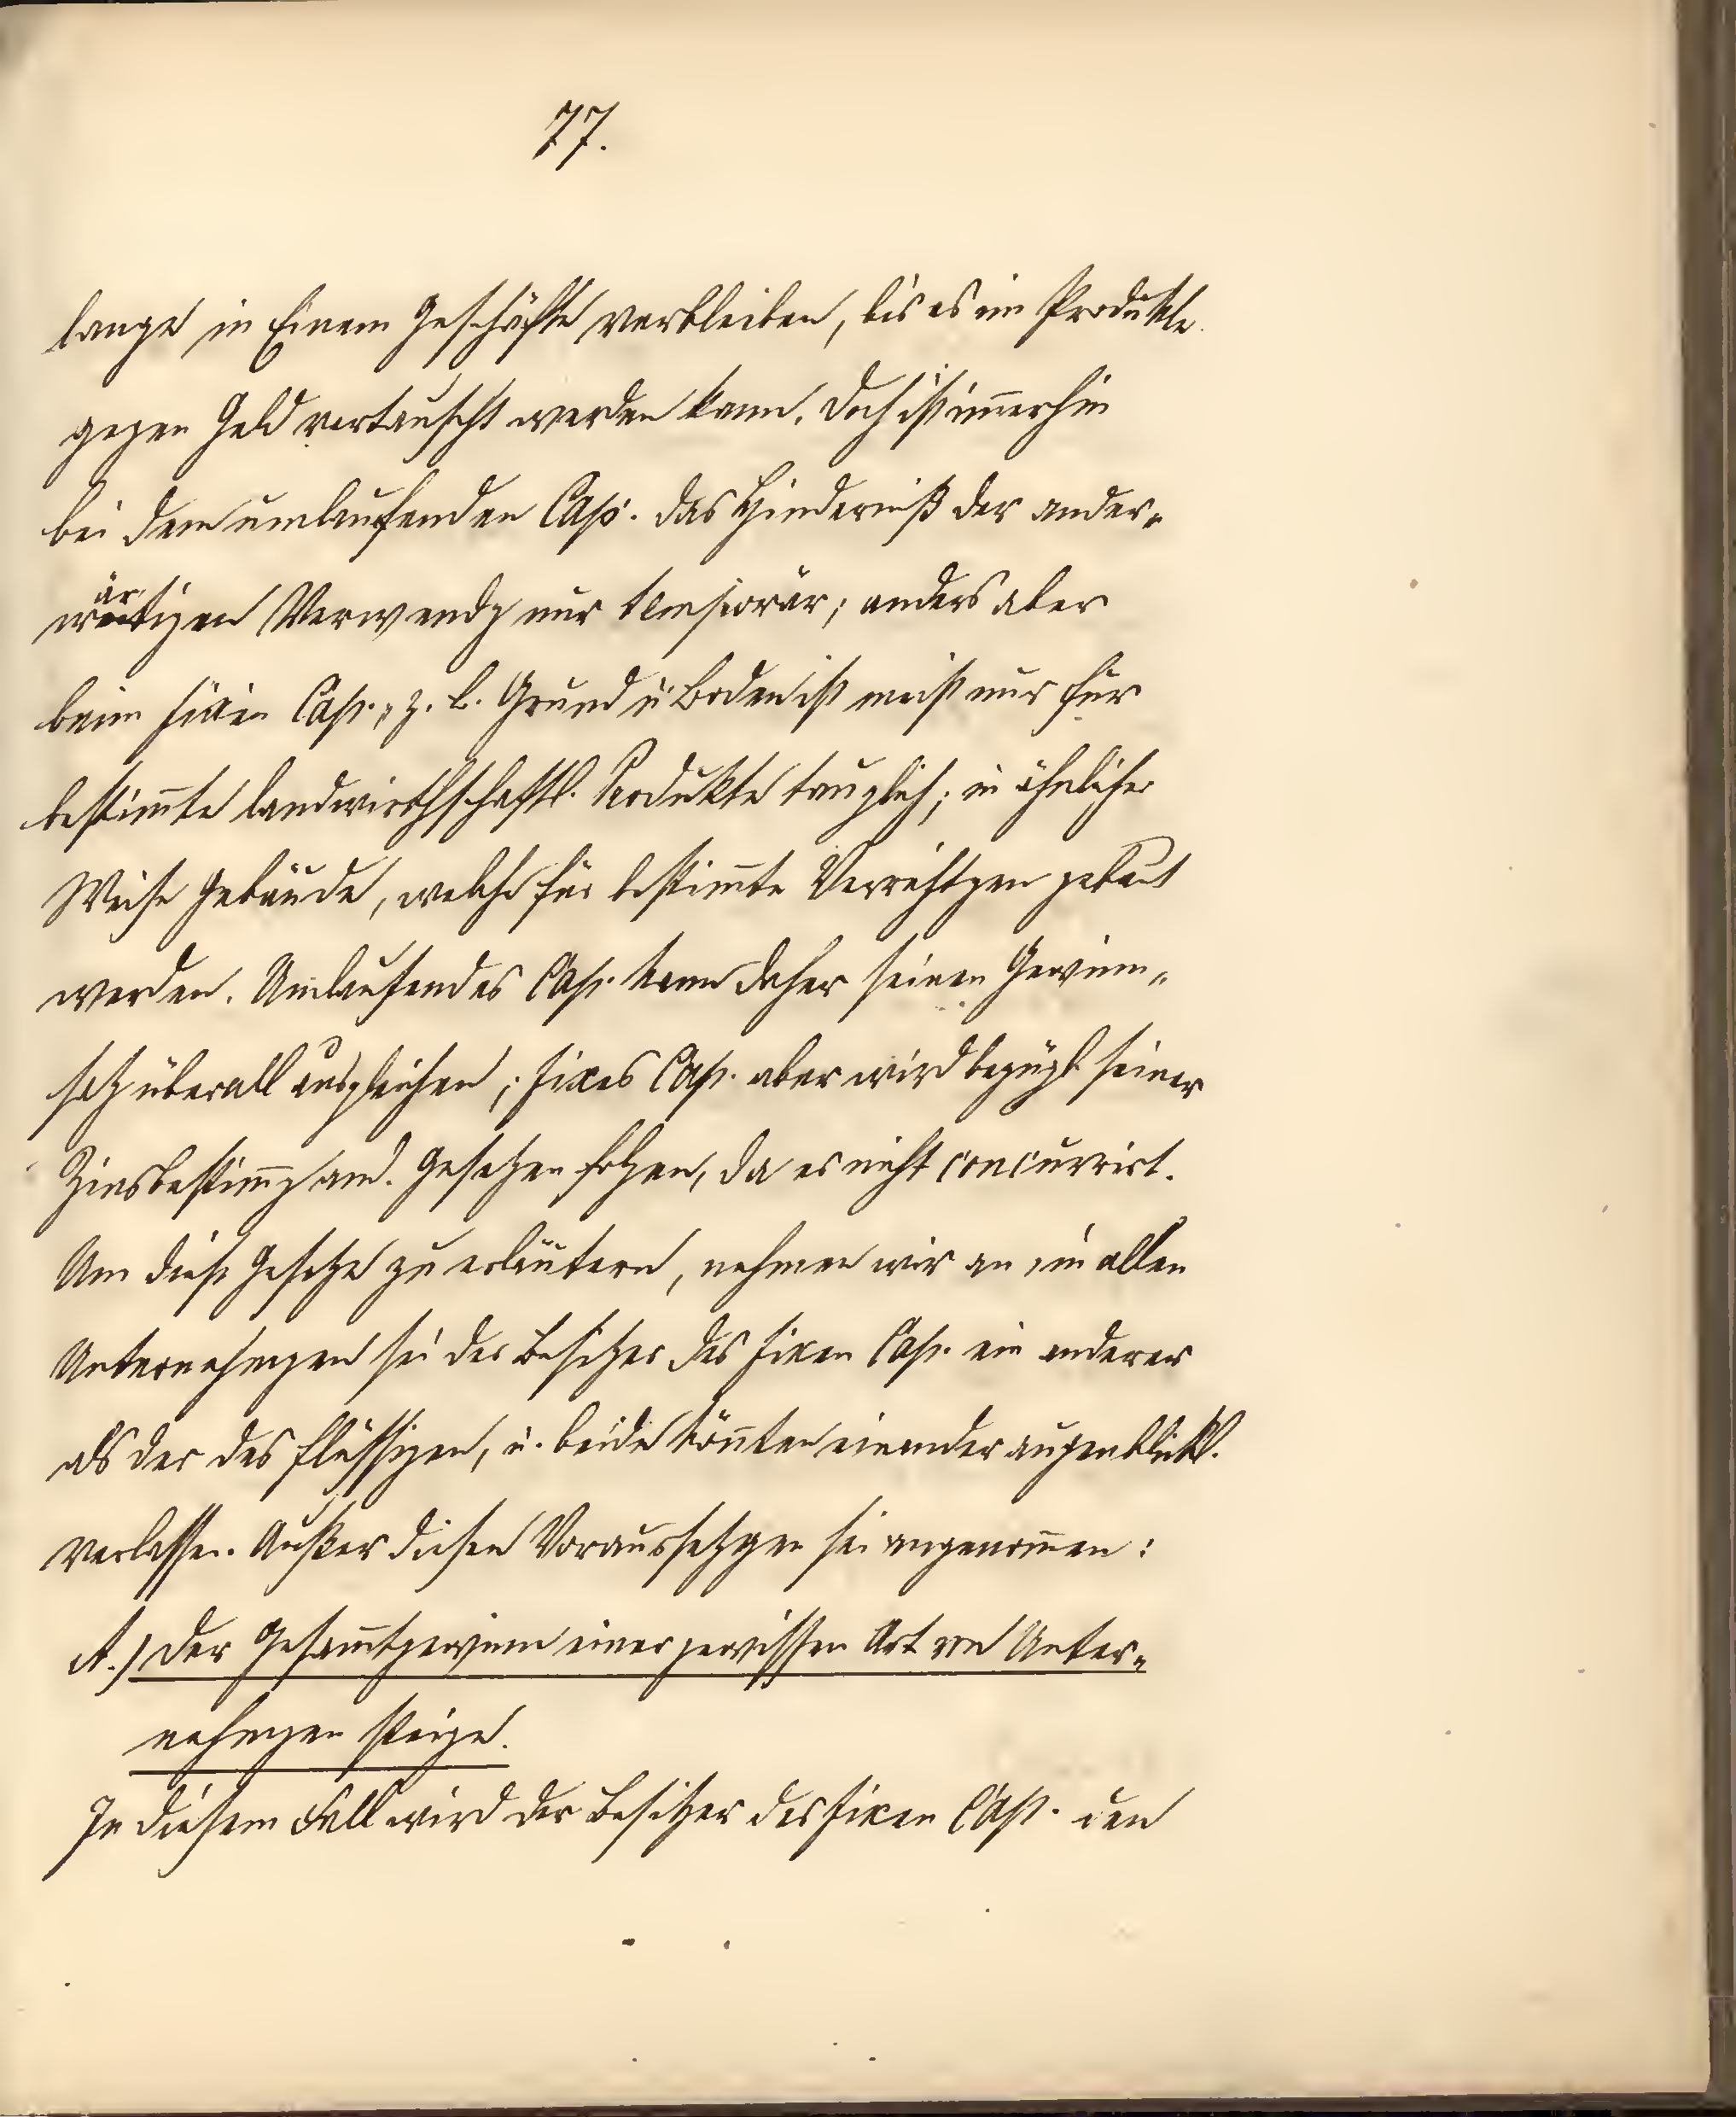 77.
lange in Einem Geschäfte verbleiben, bis es im Produkte
gegen Geld vertauscht werden kann. Doch ist im̅erhin
bei dem umlaufenden Cap. das Hinderniß der ander-
wärtigen Verwendg nur temporär; anders aber
beim fixen Cap., z. B. Grund u Boden ist meist nur für
bestim̅te landwirthschaftl. Produkte tauglich; in ähnlicher
Weise Gebäude, welche für bestim̅te Verrichtgen gebaut
werden. Umlaufendes Cap. kann daher seinen Gewinn-
satz überall ausgleichen; fixes Cap. aber wird bezügl seiner
Zinsbestim̅g and. Gesetzen folgen, da es nicht concurrirt.
Um diese Gesetze zu erläutern, nehmen wir an, in allen
Unternehmgen sei der Besitzer des fixen Cap. ein anderer
als der des flüssigen, u. beide kön̅ten einander augenblickl.
verlassen. Außer diesen Voraussetzgen sei angenom̅en:
A.) Der Gesam̅tgewinn einer gewissen Art von Unter-
nehmgen steige.
In diesem Fall wird der Besitzer des fixen Cap. den